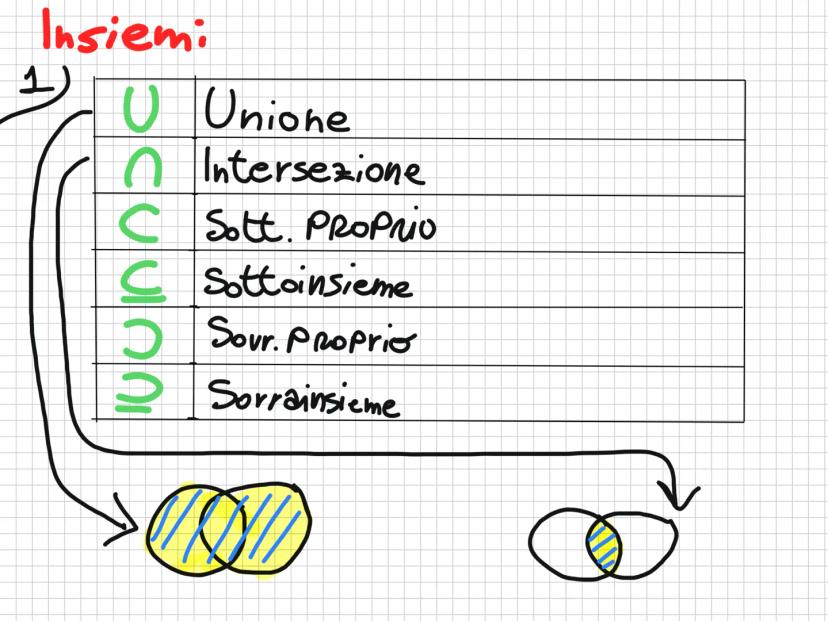 Insiemi
1)
∪ Unione
∩ Intersezione
⊂ Sott. PROPRIO
⊆ Sottoinsieme
⊃ Sovr. Proprio
⊇ Sorrainsieme